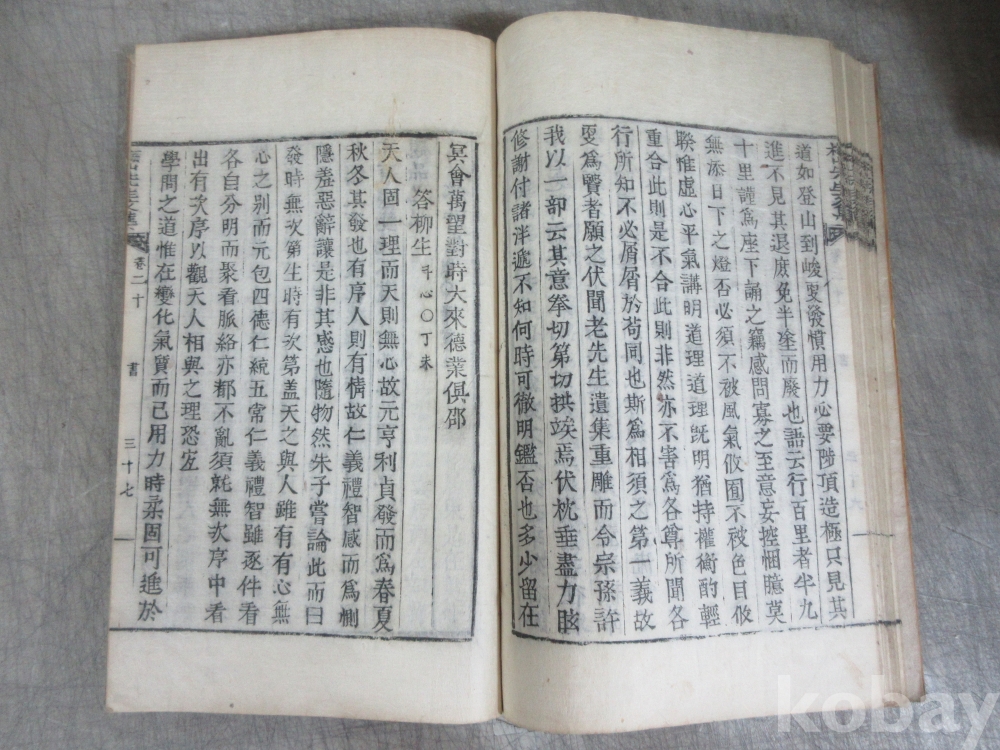 道如登山到峻更潑憤用力必要陟頂造極只見其
進不見其退庶免半塗而廢也語云行百里者半九
十里謹爲座下誦之竊感問寡之至意妄控悃臆莫
無添日下之燈否必須不被風氣攸囿不被色目攸
睽惟虛心平氣講明道理道理旣明猶持權衡酌輕
重合此則是不合此則非然亦不害爲各尊所聞各
行所知不必屑屑於苟同也斯爲相須之第一義故
更爲賢者願之伏聞老先生遺集重雕而令宗孫許
我以一部云其意拳切第切拱竢焉伏枕垂盡力眩
修謝付諸泮遞不知何時可徹明鑑否也多少留在
冥會萬望對時大來德業俱卲
答柳生 心○丁未
天人固一理而天則無心故元亨利貞發而爲春夏
秋冬其發也有序人則有情故仁義禮智感而爲惻
隱羞惡辭讓是非其感也隨物然朱子嘗論此而曰
發時無次第生時有次第盖天之與人雖有有心無
心之別而元包四德仁統五常仁義禮智雖逐件看
各自分明而聚看脈絡亦都不亂須就無次序中看
出有次序以觀天人相與之理恐宐
學問之道惟在變化氣質而已用力時柔固可進於
先生文集 卷二十 書 三十七
kobay